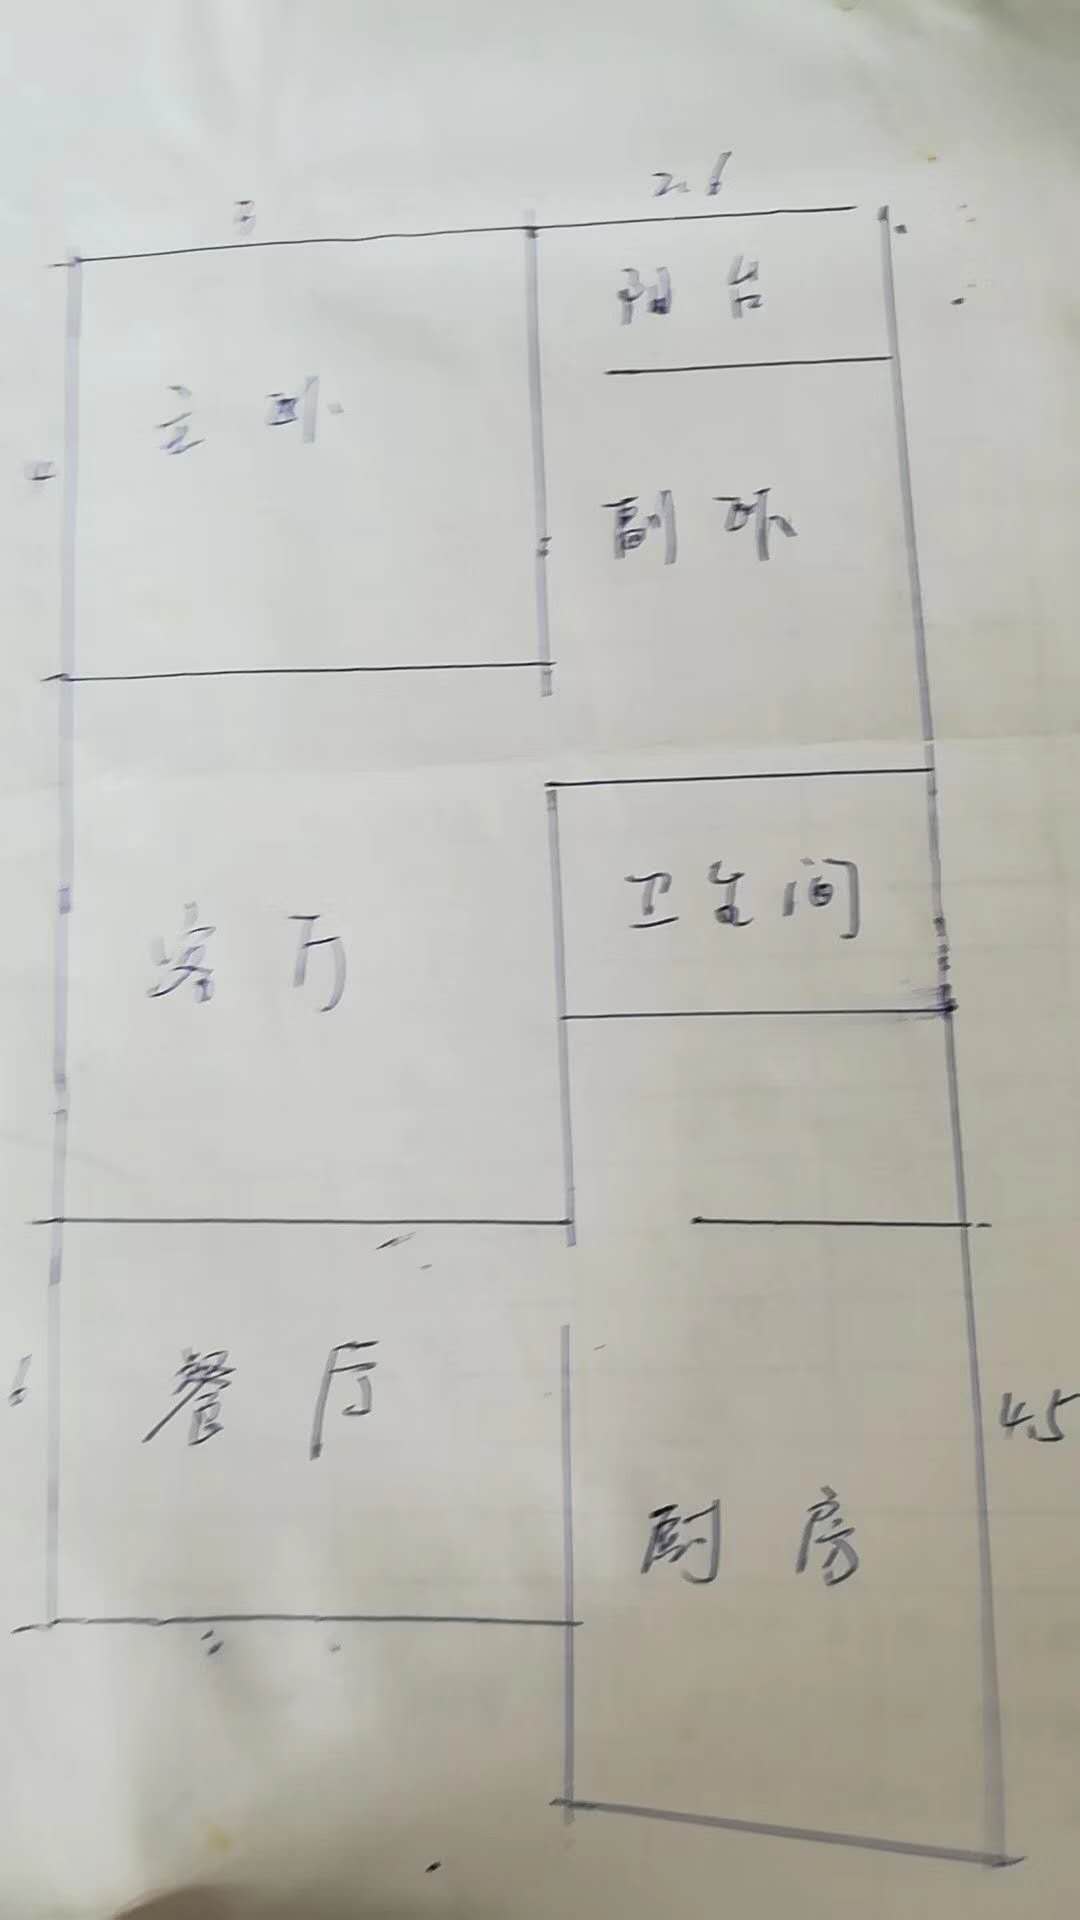 3 2.6
阳台
主卧
4
副卧
卫生间
客厅
餐厅
4.5
厨房